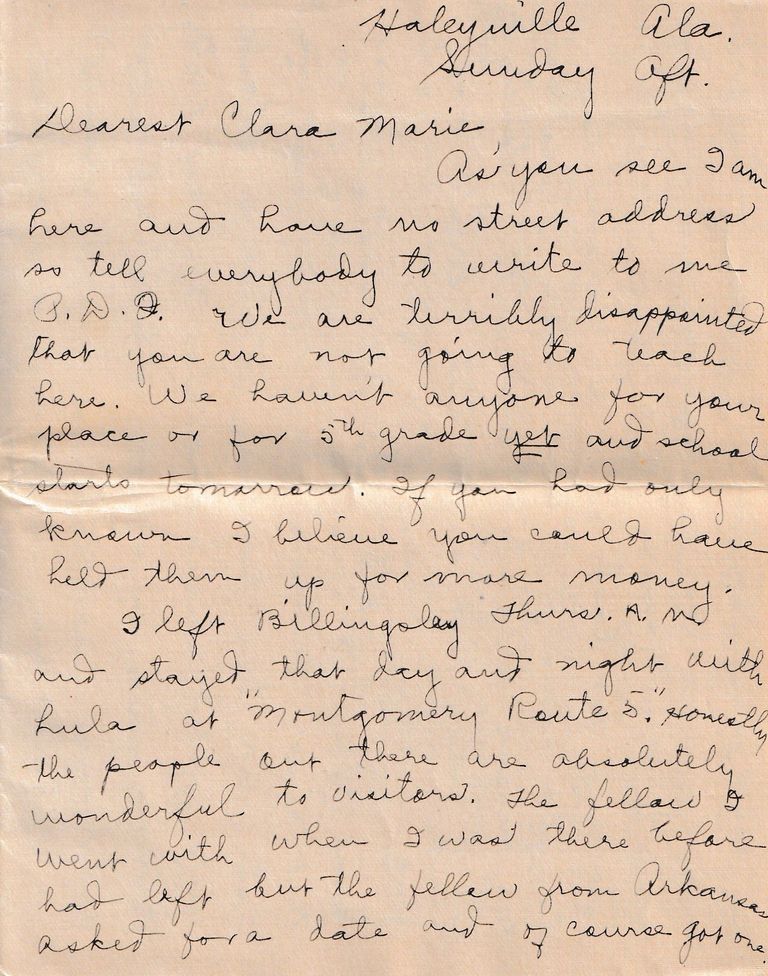 Haleyville Ala.
Sunday Aft.
Dearest Clara Marie,
As you see I am
here and have no street address
so tell everybody to write to me
P.D.Q. We are terribly disappointed
that you are not going to teach
here. We haven't anyone for your
place or for 5th grade yet and school
starts tomorrow. If you had only
known I believe you could have
held them up for more money.
I left Billingsley Thurs. A. M
and stayed that day and night with
Lula at "Montgomery Route 5." Honestly
the people out there are absolutely
wonderful to visitors. The fellow I
went with when I was there before
had left but the fellow from Arkansas
asked for a date and of course got one.